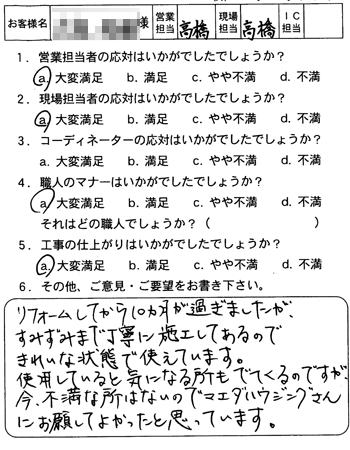 お客様名 様 営業担当 高橋 現場担当 高橋 IC担当
1．営業担当者の応対はいかがでしたでしょうか？
a. 大変満足 b. 満足 c. やや不満 d. 不満
2．現場担当者の応対はいかがでしたでしょうか？
a. 大変満足 b. 満足 c. やや不満 d. 不満
3．コーディネーターの応対はいかがでしたでしょうか？
a. 大変満足 b. 満足 c. やや不満 d. 不満
4．職人のマナーはいかがでしたでしょうか？
a. 大変満足 b. 満足 c. やや不満 d. 不満
それはどの職人でしょうか？（ ）
5．工事の仕上がりはいかがでしたでしょうか？
a. 大変満足 b. 満足 c. やや不満 d. 不満
6．その他、ご意見・ご要望をお書き下さい。
リフォームしてから10ヵ月が過ぎましたが、
すみずみまで丁寧に施工してあるので
きれいな状態で使えています。
使用していると気になる所もでてくるのですが、
今、不満な所はないのでマエダハウジングさん
にお願してよかったと思っています。